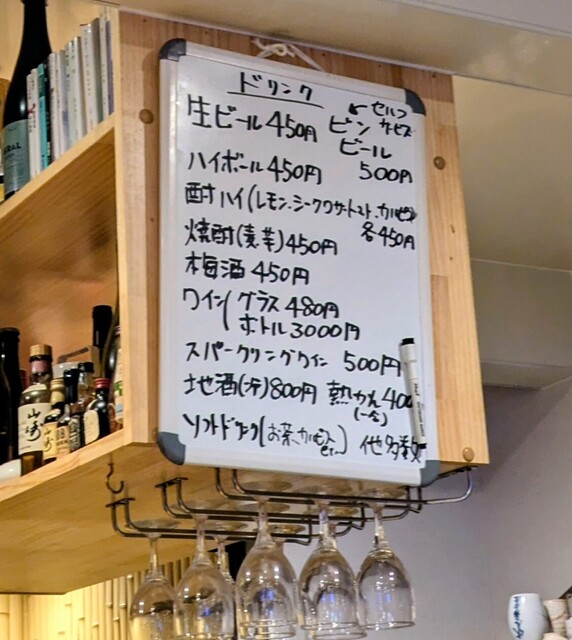 ドリンク
生ビール 450円
ビンビール 500円
←セルフサービス
ハイボール 450円
酎ハイ(レモン.シークワサー.トマト.カルピス)
各450円
焼酎(麦.芋)450円
梅酒 450円
ワイン(グラス 480円
ボトル 3000円
スパークリングワイン 500円
地酒(冷)800円 熱かん 400
(一合)
ソフトドリンク(お茶.カルピスetc...) 他多数
山崎